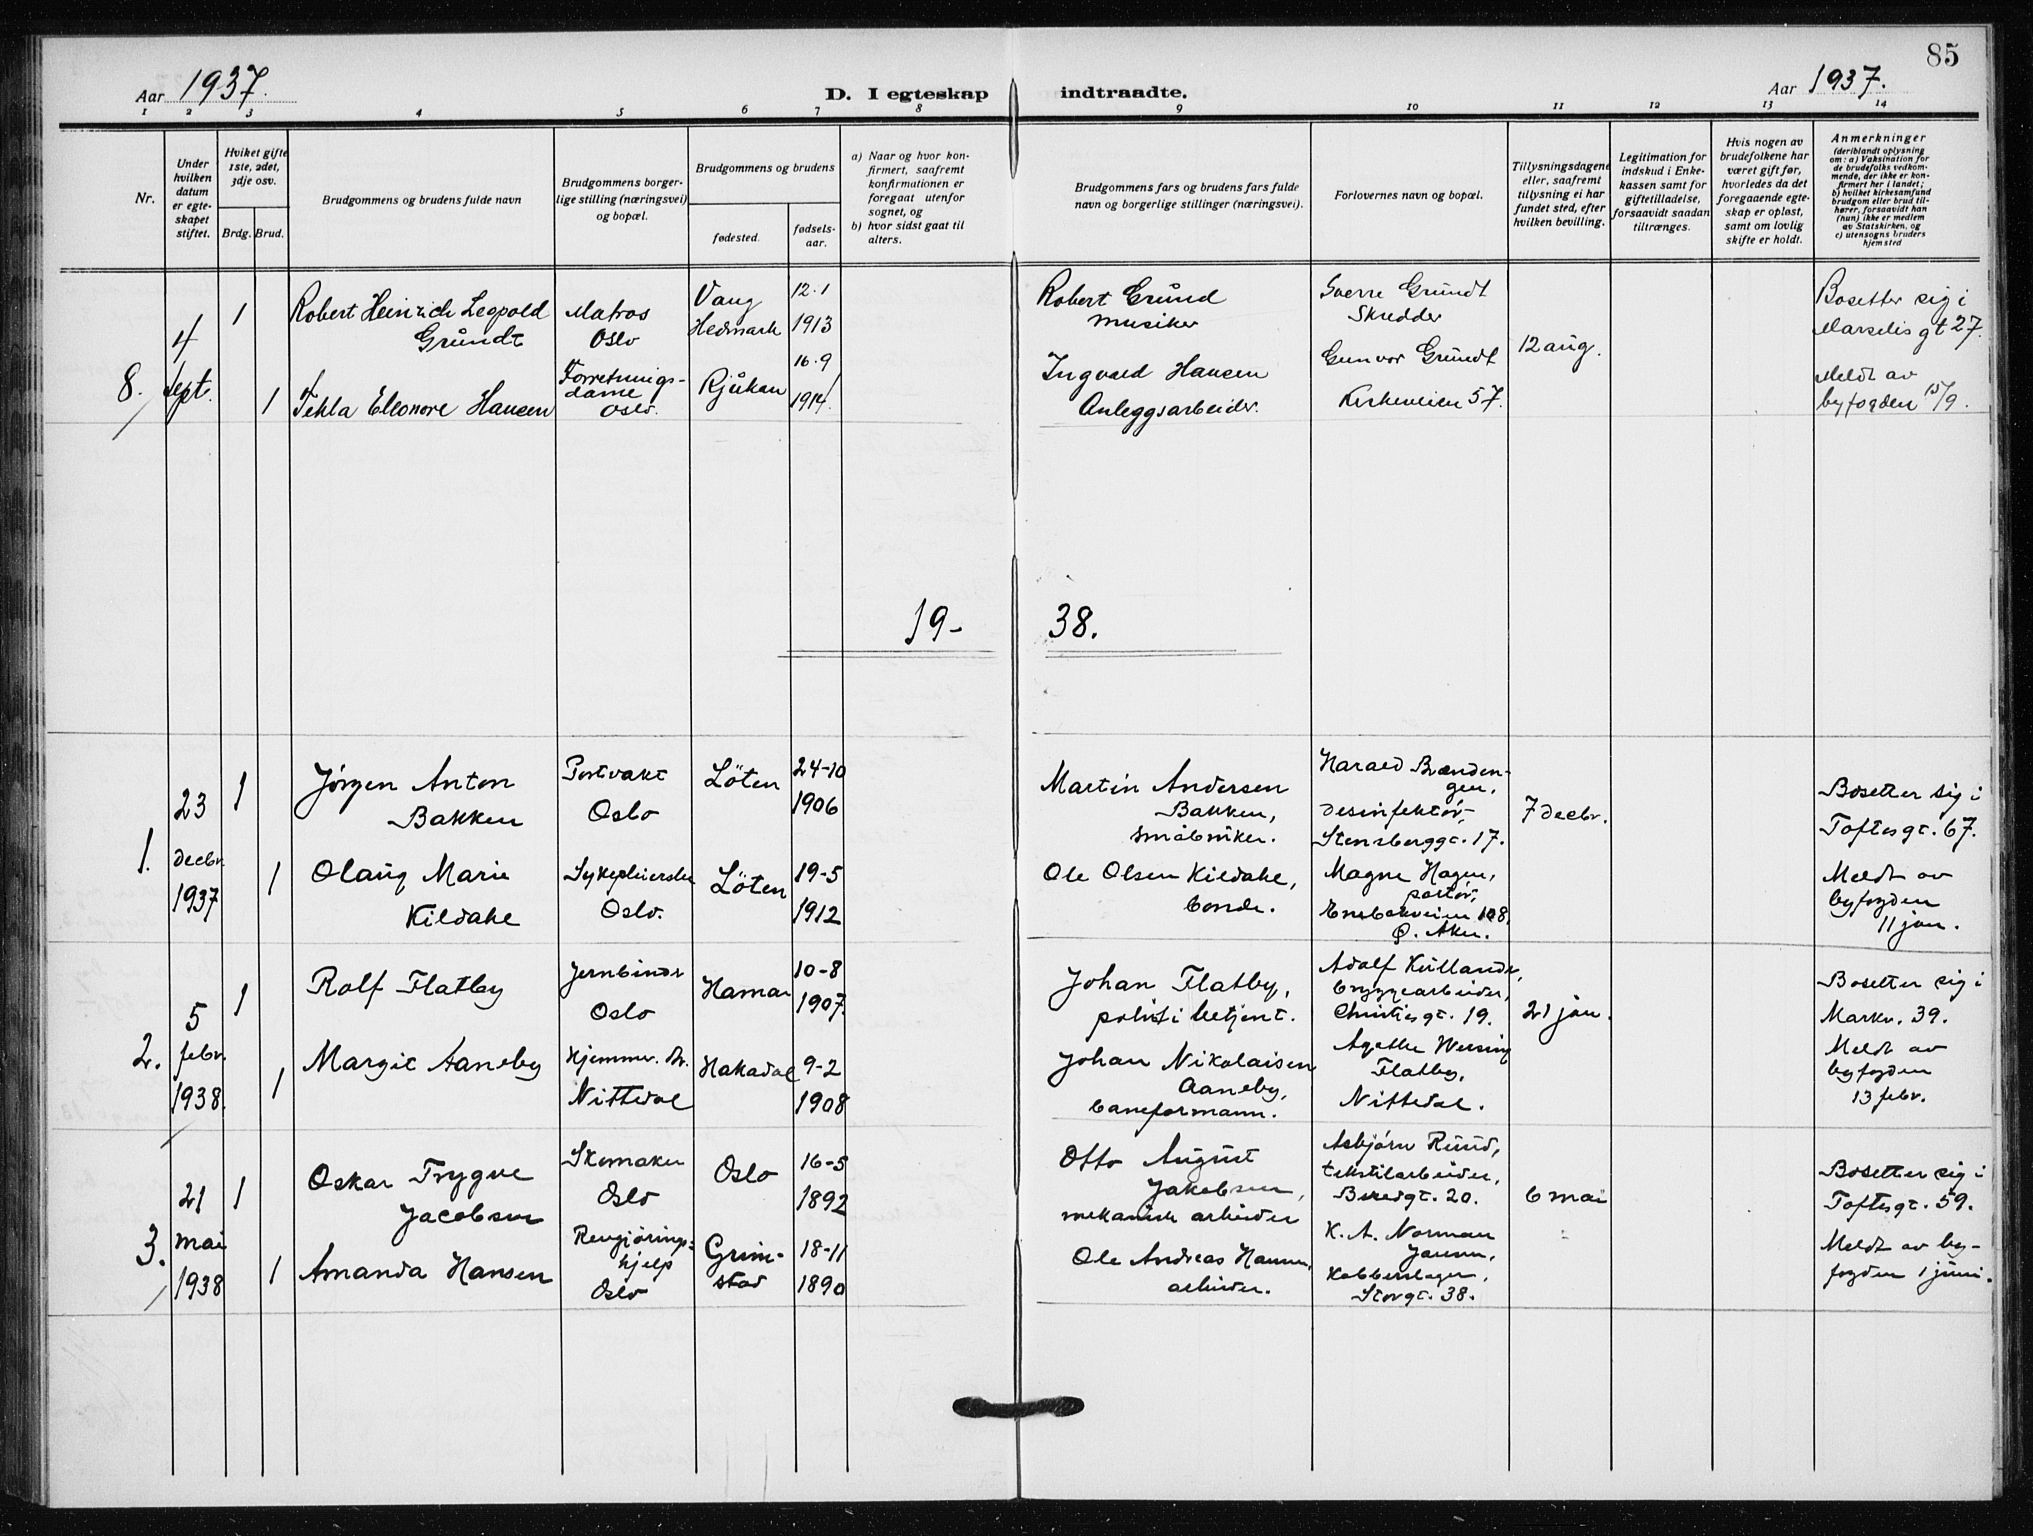 85
Aar 1937.
D. I egteskap indtraadte.
Aar 1937.
1 2 3 4 5 6 7 8 9 10 11 12 13 14
Nr.
Under
hvilken
datum
er egte-
skapet
stiftet.
Hviket gifte
1ste, 2det,
3dje osv.
Brdg. Brud.
Brudgommens og brudens fulde navn
Brudgommens borger-
lige stilling (næringsvei)
og bopæl.
Brudgommens og brudens
fødested.
fødsels-
aar.
a) Naar og hvor kon-
firmert, saafremt
konfirmationen er
foregaat utenfor
sognet, og
b) hvor sidst gaat til
alters.
Brudgommens fars og brudens fars fulde
navn og borgerlige stillinger (næringsvei).
Forlovernes navn og bopæl.
Tillysningsdagene
eller, saafremt
tillysning ei har
fundet sted, efter
hvilken bevilling.
Legitimation for
indskud i Enke-
kassen samt for
giftetilladelse,
forsaavidt saadan
tiltrænges.
Hvis nogen av
brudefolkene har
været gift før,
hvorledes da det
foregaaende egte-
skap er opløst,
samt om lovlig
skifte er holdt.
Anmerkninger
(deriblandt oplysning
om: a) Vaksination for
de brudefolks vedkom-
mende, der ikke er kon-
firmert her i landet;
b) hvilket kirkesamfund
brudgom eller brud til-
hører, forsaavidt han
(hun) ikke er medlem
av Statskirken, og
c) utensogns bruders
hjemsted
8.
4
sept.
1
Robert Heinrich Leopold
Gründt
Matros
Oslo
Vang
Hedmark
12.1
1913
Robert Gründ
musiker
Sverre Gründt
Skredder
12 aug.
Bosetter sig i
Marselis gt 27.
1
Tekla Eleonore Hansen
Forretnings-
dame
Oslo.
Rjukan
16.9
1914
Ingvald Hansen
Anleggsarbeider.
Gunvor Gründt
Kirkeveien 57.
Meldt av
byfogden 15/9.
19- 38.
1.
23
decbr.
1937
1
Jörgen Anton
Bakken
Portvakt
Oslo
Löten
24-10
1906
Martin Andersen
Bakken,
småbruker.
Harald Brænden-
gen,
desinfektör,
Stensberggt. 17.
7 decbr.
Bosetter sig i
Toftesgt. 67.
1
Olaug Marie
Kildahl
Sykepleierske
Oslo.
Löten
19-5
1912
Ole Olsen Kildahl,
bonde.
Magne Hagen,
portör,
Ensbakveien 108,
Ö. Aker.
Meldt av
byfogden
11 jan.
2.
5
febr.
1938.
1
Rolf Flatby
Jernbinder
Oslo
Hamar
10-8
1907.
Johan Flatby,
politi betjent.
Adolf Kullander,
bryggearbeider,
Christiesgt. 19.
21 jan.
Bosetter sig i
Markv. 39.
1
Margit Aaneby
Hjemmev. Dr.
Nittedal
Hakadal
9-2
1908
Johan Nikolaisen
Aaneby,
baneformann.
Agathe
Flatby,
Nittedal.
Meldt av
byfogden
13 febr.
3.
21
mai
1938
1
Oskar Trygve
Jacobsen
Skomaker
Oslo
Oslo
16-5
1892
Otto August
Jakobsen,
mekanisk arbeider
Asbjörn Ruud,
tekstilarbeider,
20.
6 mai
Bosetter sig i
Toftesgt. 59.
1
Amanda Hansen
Rengjörings-
hjelp
Oslo
Grim-
stad
18-11
1890
Ole Andreas Hansen,
arbeider.
K. A. Norman
Jensen,
Kobberslager,
Storgt. 38.
Meldt av by-
fogden 1 juni.